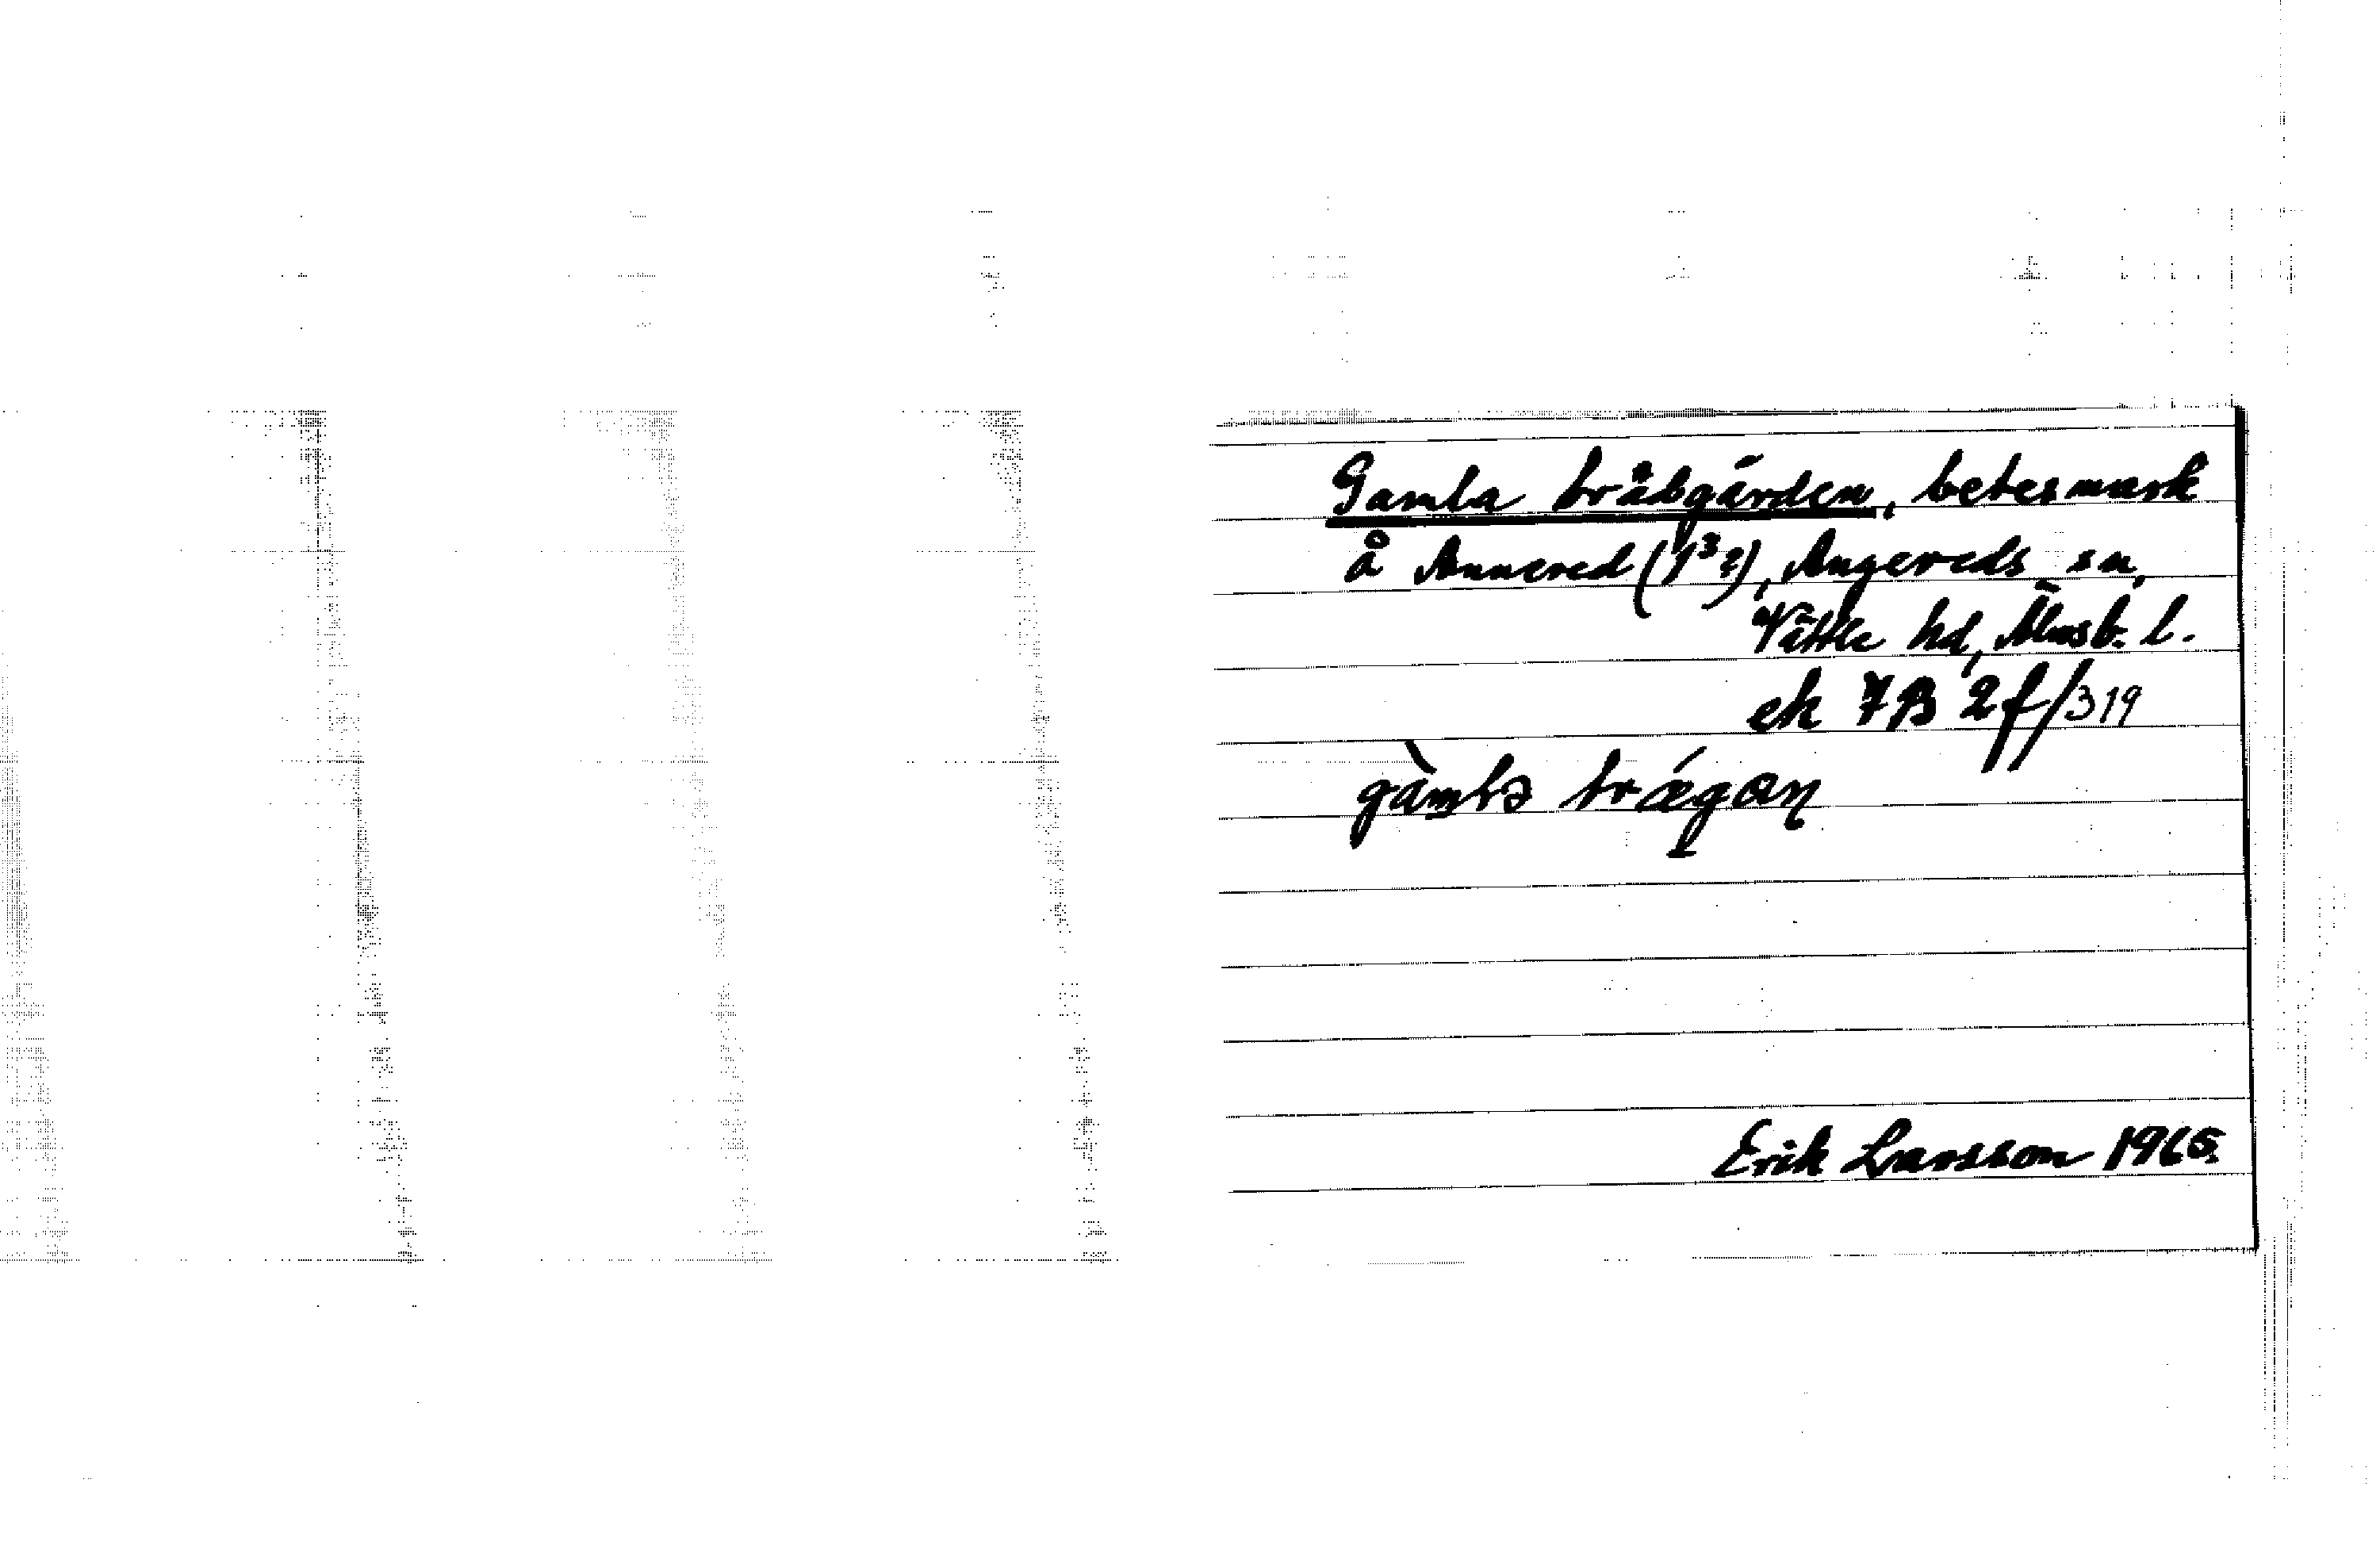 Gamla trädgården, betesmark
å Annered (1³?), Angereds sn,
Vättle hd, Älvsb. l.
ek 7B 2f/319
gàmla trǽgan
Erik Larsson 1965.